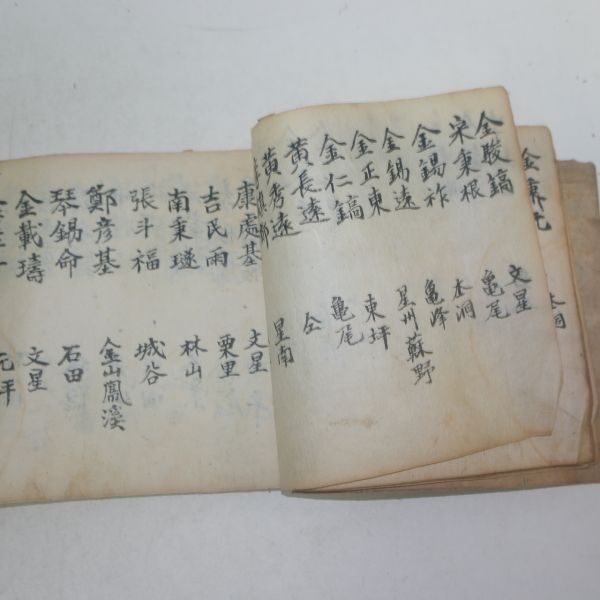 金 本洞
金駿鎬 文星
宋秉根 亀尾
金錫祚 本洞
金錫遠 亀峰
金正東 星州蘇野
金仁鎬 東坪
黃長遠 亀尾
黃秀遠 仝
星南
康處基 文星
吉民雨 栗里
南秉璲 林山
張斗福 城谷
鄭彦基 金山鳳溪
琴錫命 石田
金載璹 文星
元坪